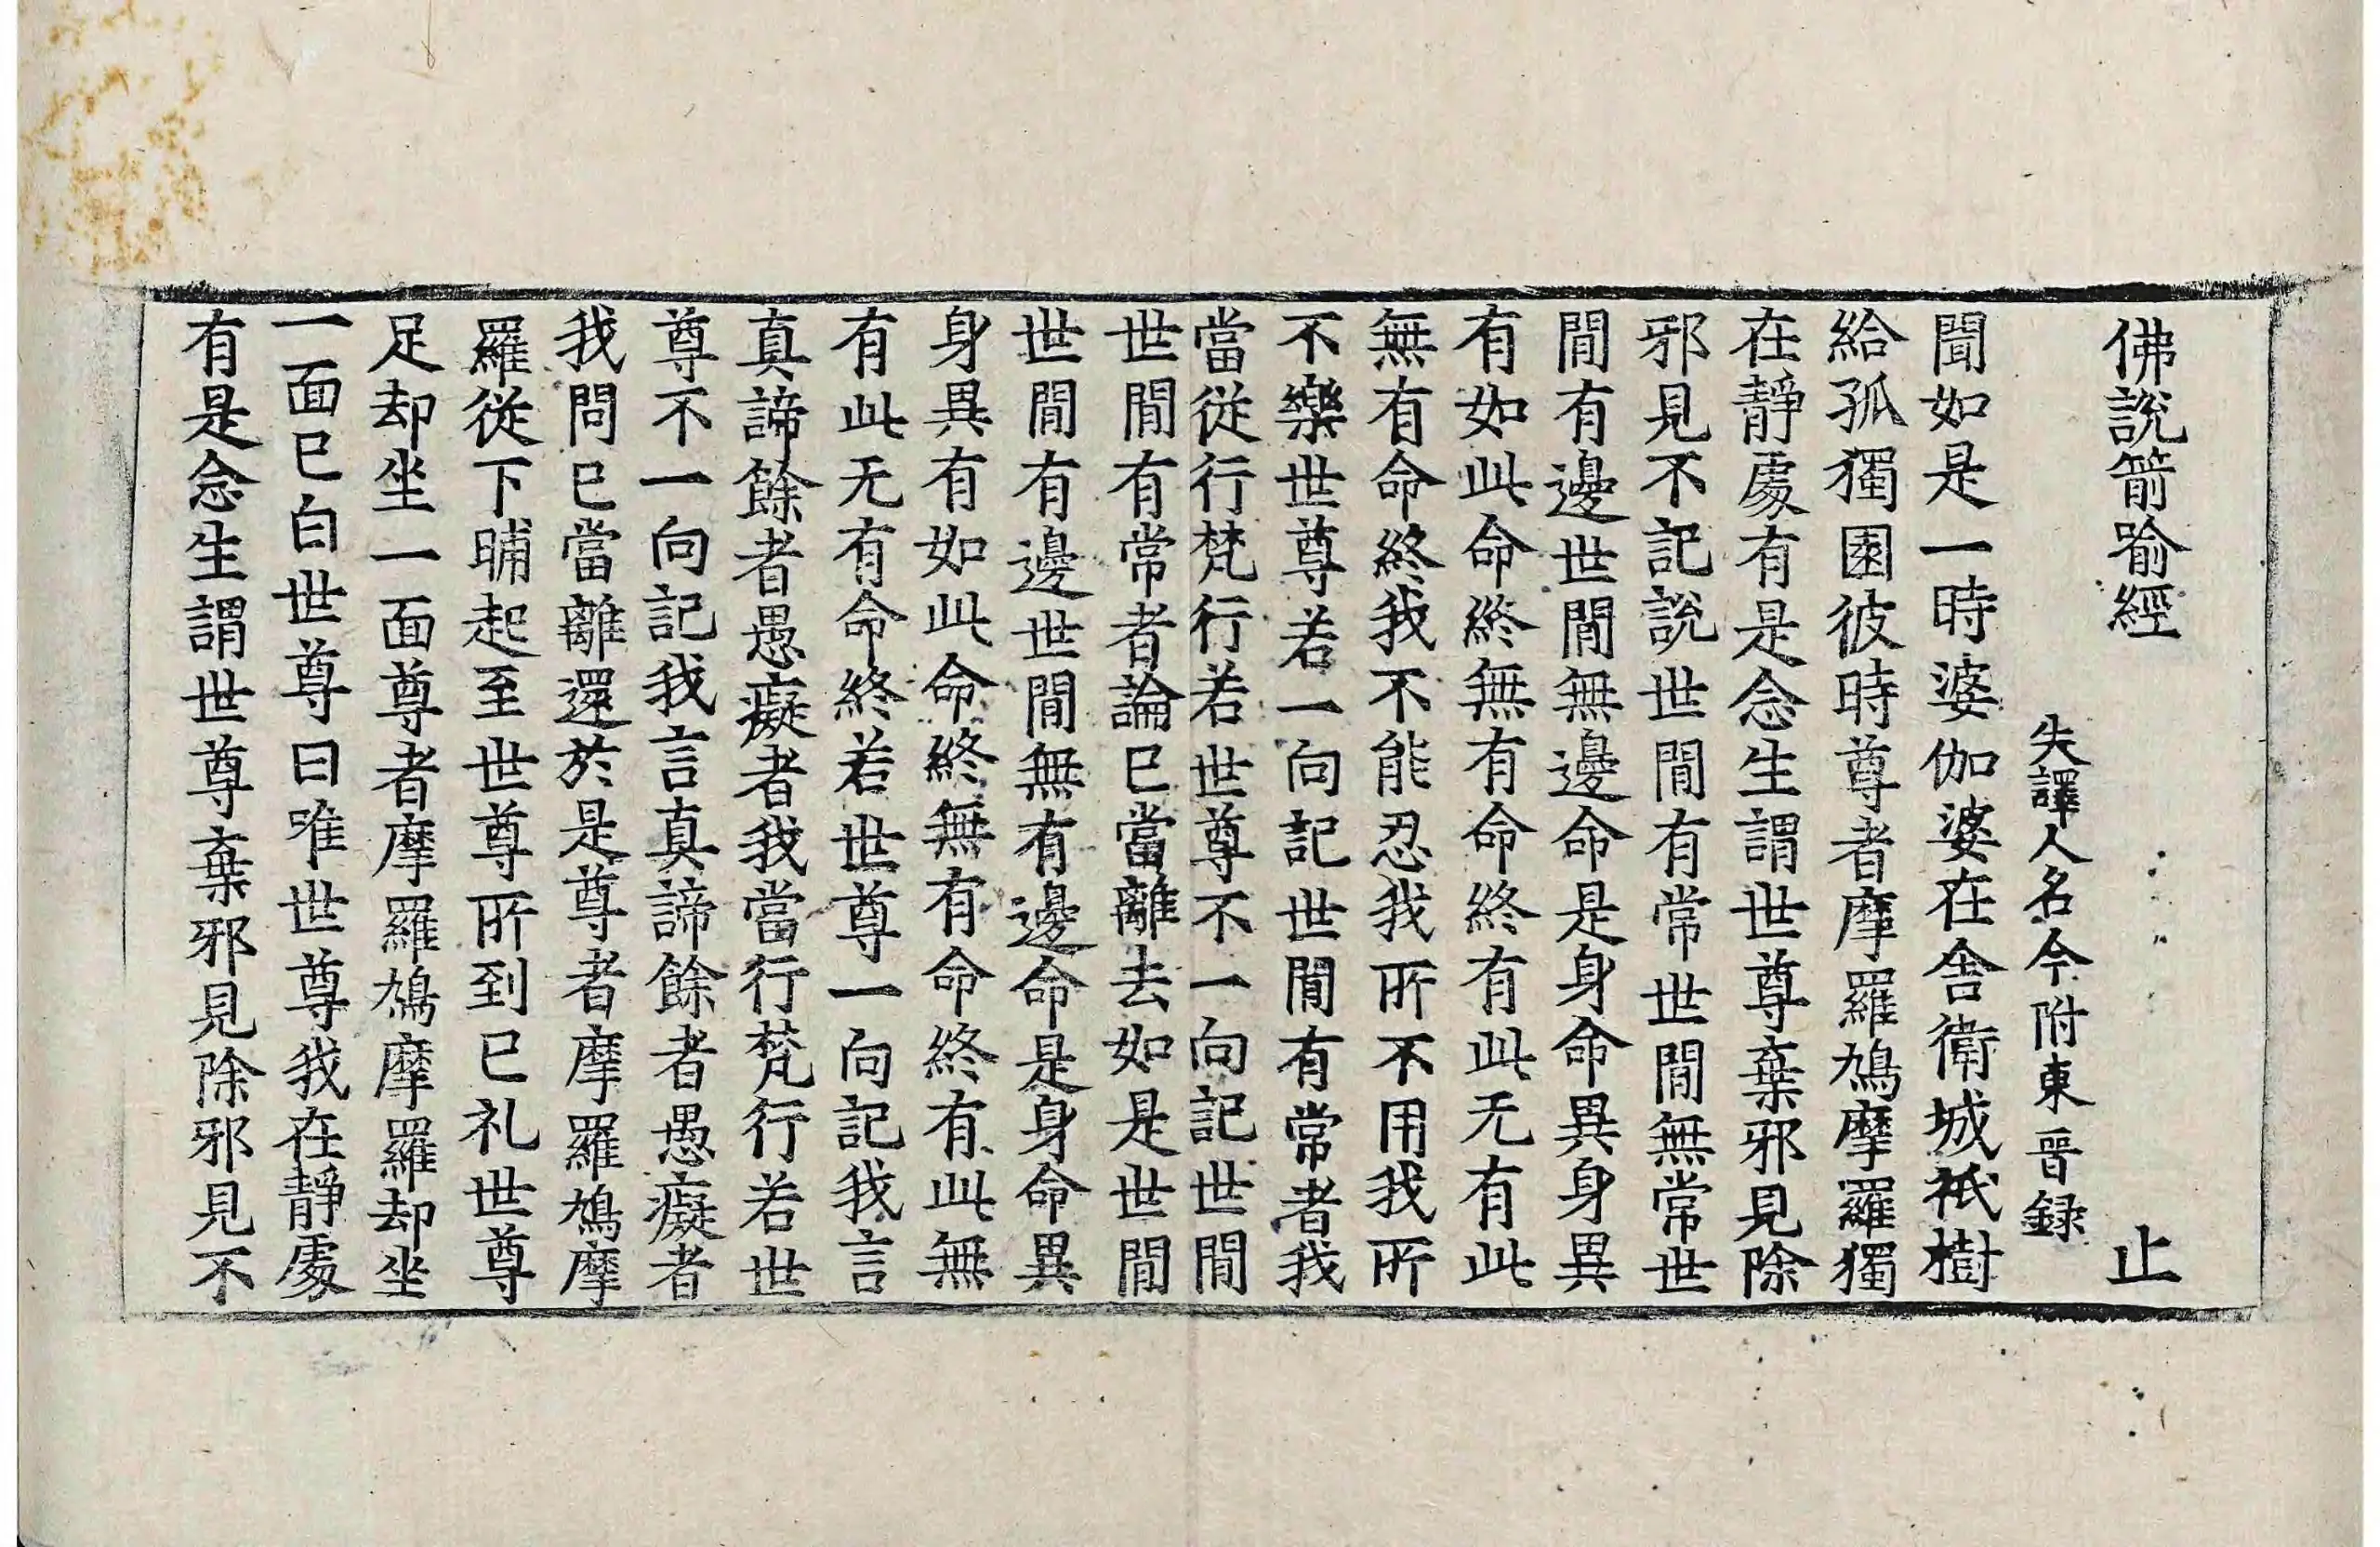 佛說箭喻經 止
失譯人名今附東晉録
聞如是一時婆伽婆在舍衛城祇樹
給孤獨園彼時尊者摩羅鳩摩羅獨
在靜處有是念生謂世尊棄邪見除
邪見不記說世間有常世間無常世
間有邊世間無邊命是身命異身異
有如此命終無有命終有此无有此
無有命終我不能忍我所不用我所
不樂世尊若一向記世間有常者我
當從行梵行若世尊不一向記世間
世間有常者論已當離去如是世間
世間有邊世間無有邊命是身命異
身異有如此命終無有命終有此無
有此无有命終若世尊一向記我言
真諦餘者愚癡者我當行梵行若世
尊不一向記我言真諦餘者愚癡者
我問已當離還於是尊者摩羅鳩摩
羅從下晡起至世尊所到已礼世尊
足却坐一面尊者摩羅鳩摩羅却坐
一面已白世尊曰唯世尊我在靜處
有是念生謂世尊棄邪見除邪見不